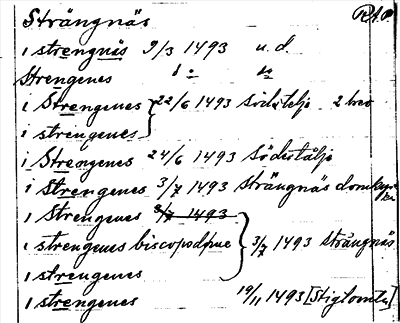 Strängnäs RAP
i strengnäs 9/3 1493 u.d.
Strengenes d:o
i Strengenes 22/6 1493 Södetelje 2 brev
i strengenes
i Strengenes 24/6 1493 Södertälje
i Strengenes 3/7 1493 strängnäs domkyrka
i Strengenes 3/7 1493
i strengenes biscopsdøme 3/7 1493 strängnäs
i strengenes
i strengenes 19/11 1493 [Stigtomta]